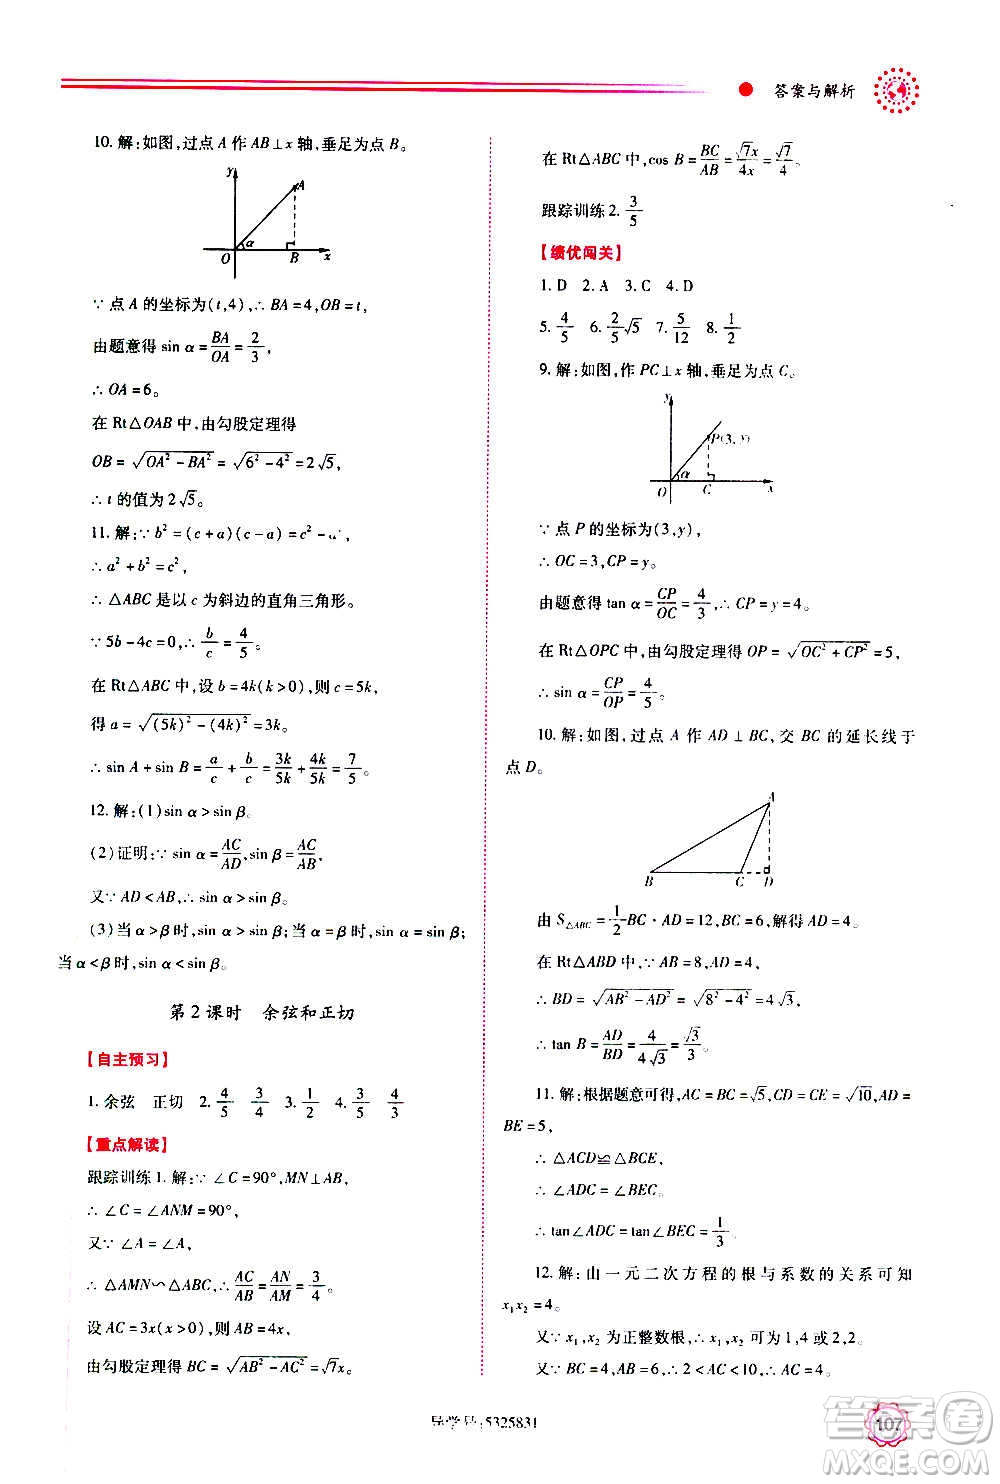 答案与解析
10. 解:如图,过点 A 作 AB⊥x 轴,垂足为点 B。
y
A
α
O
B
x
∵ 点 A 的坐标为(t,4),∴ BA=4,OB=t,
由题意得 sin α=BA/OA=2/3,
∴ OA=6。
在 Rt△OAB 中,由勾股定理得
OB=√(OA²-BA²)=√(6²-4²)=2√5,
∴ t 的值为 2√5。
11. 解:∵ b²=(c+a)(c-a)=c²-
∴ a²+b²=c²,
∴ △ABC 是以 c 为斜边的直角三角形。
∵ 5b-4c=0,∴ b/c=4/5。
在 Rt△ABC 中,设 b=4k(k>0),则 c=5k,
得 a=√((5k)²-(4k)²)=3k。
∴ sin A+sin B=a/c+b/c=3k/5k+4k/5k=7/5。
12. 解:(1)sin α>sin β。
(2)证明:∵ sin α=AC/AD,sin β=AC/AB,
又∵ AD<AB,∴ sin α>sin β。
(3)当 α>β 时,sin α>sin β;当 α=β 时,sin α=sin β;
当 α<β 时,sin α<sin β。
第 2 课时 余弦和正切
【自主预习】
1. 余弦 正切 2. 4/5 3/4 3. 1/2 4. 3/5 3/4
【重点解读】
跟踪训练 1. 解:∵ ∠C=90°,MN⊥AB,
∴ ∠C=∠ANM=90°,
又∵ ∠A=∠A,
∴ △AMN∽△ABC,∴ AC/AB=AN/AM=3/4。
设 AC=3x(x>0),则 AB=4x,
由勾股定理得 BC=√(AB²-AC²)=√7x。
在 Rt△ABC 中,cos B=BC/AB=√7x/4x=√7/4。
跟踪训练 2. 3/5
【绩优闯关】
1. D 2. A 3. C 4. D
5. 4/5 6. 2/5√5 7. 5/12 8. 1/2
9. 解:如图,作 PC⊥x 轴,垂足为点 C。
y
P(3,y)
α
O
C
x
∵ 点 P 的坐标为(3,y),
∴ OC=3,CP=y。
由题意得 tan α=CP/OC=4/3,∴ CP=y=4。
在 Rt△OPC 中,由勾股定理得 OP=√(OC²+CP²)=5,
∴ sin α=CP/OP=4/5。
10. 解:如图,过点 A 作 AD⊥BC,交 BC 的延长线于
点 D。
A
B
C
D
由 S△ABC=1/2BC·AD=12,BC=6,解得 AD=4。
在 Rt△ABD 中,∵ AB=8,AD=4,
∴ BD=√(AB²-AD²)=√(8²-4²)=4√3,
∴ tan B=AD/BD=4/4√3=√3/3。
11. 解:根据题意可得,AC=BC=√5,CD=CE=√10,AD=
BE=5,
∴ △ACD≌△BCE,
∴ ∠ADC=∠BEC。
∴ tan∠ADC=tan∠BEC=1/3。
12. 解:由一元二次方程的根与系数的关系可知
x₁x₂=4。
又∵ x₁,x₂ 为正整数根,∴ x₁,x₂ 可为 1,4 或 2,2。
又∵ BC=4,AB=6,∴ 2<AC<10,∴ AC=4。
导学号:5325831
107
答案圈
MXQE.COM